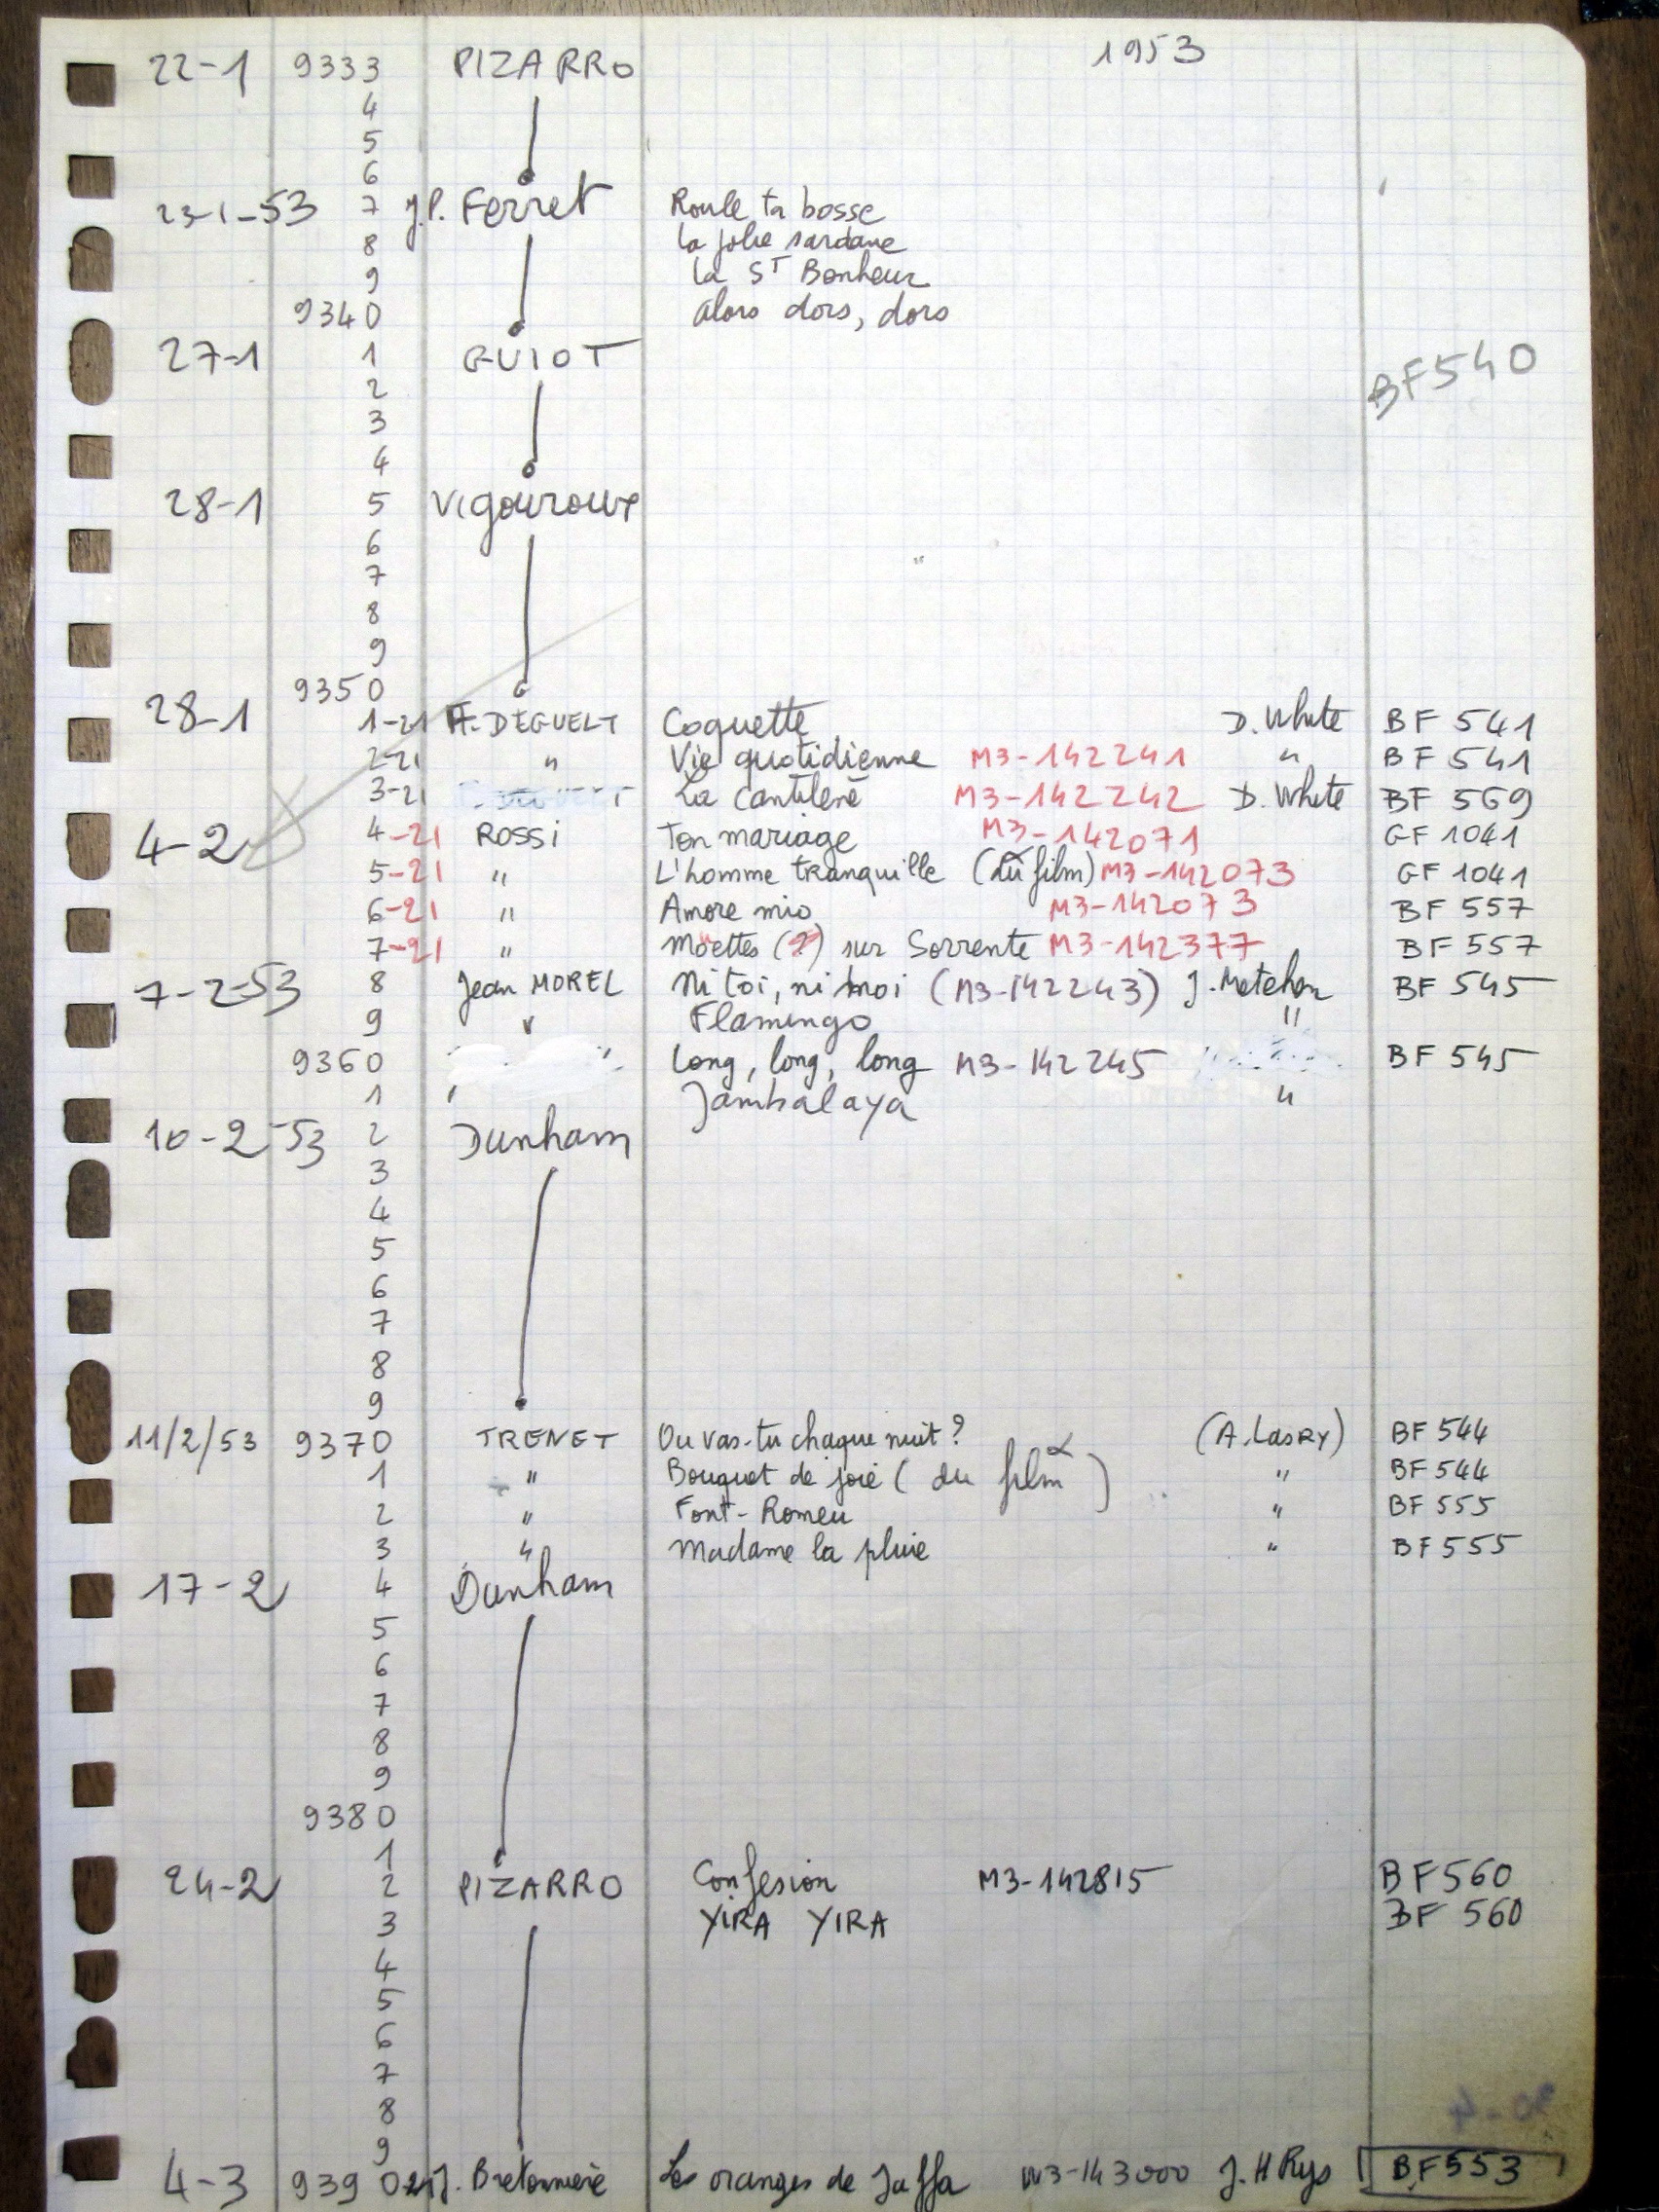 1953
22-1 9333 PIZARRO
4
5
6
23-1-53 7 J.P. Ferret Roule ta bosse
8 La jolie sardane
9 La ST Bonheur
9340 Alors dors, dors
27-1 1 GUIOT
2 BF540
3
4
28-1 5 Vigouroux
6
7
8
9
9350
28-1 1-21 F. DEGUELT Coquette D. White BF 541
2-21 " Vie quotidienne M3-142241 " BF 541
3-21 La cantilène M3-142242 D. White BF 569
4-2 4-21 ROSSI Ton mariage M3-142071 GF 1041
5-21 " L'homme tranquille (du film) M3-142073 GF 1041
6-21 " Amore mio M3-142073 BF 557
7-21 " Moettes (?) sur Sorrente M3-142377 BF 557
7-2-53 8 Jean MOREL Ni toi, ni moi (M3-142243) J. Metehen BF 545
9 " Flamingo "
9360 " Long, long, long M3-142245 BF 545
1 Jambalaya "
10-2-53 2 Dunham
3
4
5
6
7
8
9
11/2/53 9370 TRENET Ou vas-tu chaque nuit? (A. LASRY) BF 544
1 " Bouquet de joie (du film) " BF 544
2 " Font-Romeu " BF 555
3 " Madame la pluie " BF 555
17-2 4 Dunham
5
6
7
8
9
9380
1
24-2 2 PIZARRO Confesion M3-142815 BF560
3 YIRA YIRA BF 560
4
5
6
7
8
9
4-3 9390 21 J. Bretonnière Les oranges de Jaffa M3-143000 J. H Rys BF553